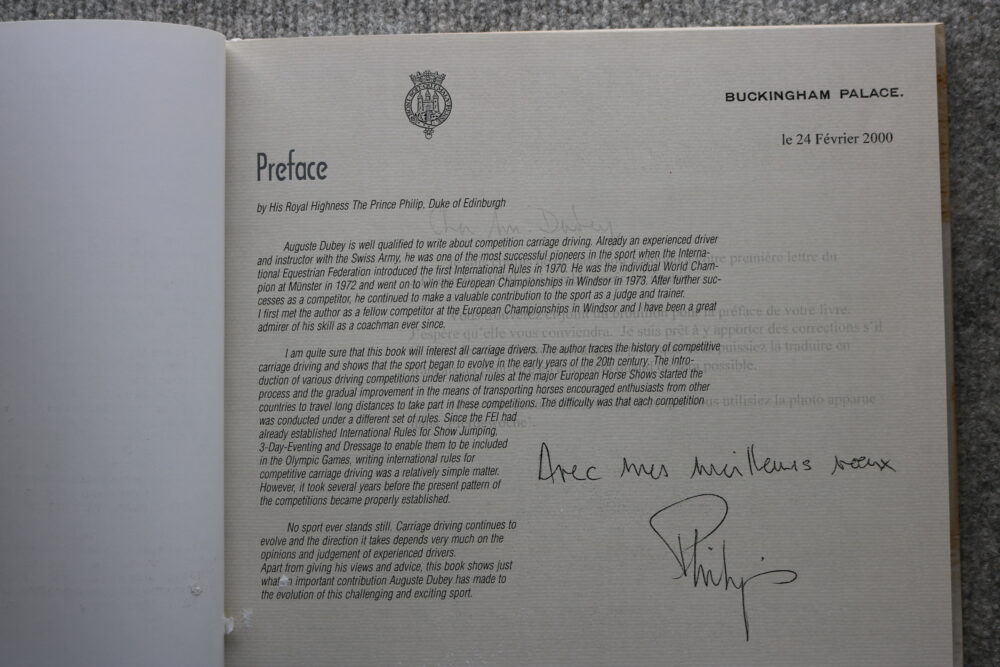 BUCKINGHAM PALACE.
le 24 Février 2000
Preface
by His Royal Highness The Prince Philip, Duke of Edinburgh
Auguste Dubey is well qualified to write about competition carriage driving. Already an experienced driver
and instructor with the Swiss Army, he was one of the most successful pioneers in the sport when the Interna-
tional Equestrian Federation introduced the first International Rules in 1970. He was the individual World Cham-
pion at Münster in 1972 and went on to win the European Championships in Windsor in 1973. After further suc-
cesses as a competitor, he continued to make a valuable contribution to the sport as a judge and trainer.
I first met the author as a fellow competitor at the European Championships in Windsor and I have been a great
admirer of his skill as a coachman ever since.
I am quite sure that this book will interest all carriage drivers. The author traces the history of competitive
carriage driving and shows that the sport began to evolve in the early years of the 20th century. The intro-
duction of various driving competitions under national rules at the major European Horse Shows started the
process and the gradual improvement in the means of transporting horses encouraged enthusiasts from other
countries to travel long distances to take part in these competitions. The difficulty was that each competition
was conducted under a different set of rules. Since the FEI had
already established International Rules for Show Jumping,
3-Day-Eventing and Dressage to enable them to be included
in the Olympic Games, writing international rules for
competitive carriage driving was a relatively simple matter.
However, it took several years before the present pattern of
the competitions became properly established.
No sport ever stands still. Carriage driving continues to
evolve and the direction it takes depends very much on the
opinions and judgement of experienced drivers.
Apart from giving his views and advice, this book shows just
what an important contribution Auguste Dubey has made to
the evolution of this challenging and exciting sport.
Dubey,
première lettre du
préface de votre livre.
J'espère qu'elle vous conviendra. Je suis prêt à y apporter des corrections s'il
puissiez la traduire en
possible.
utilisiez la photo apparue
Avec mes meilleurs voeux
Philip